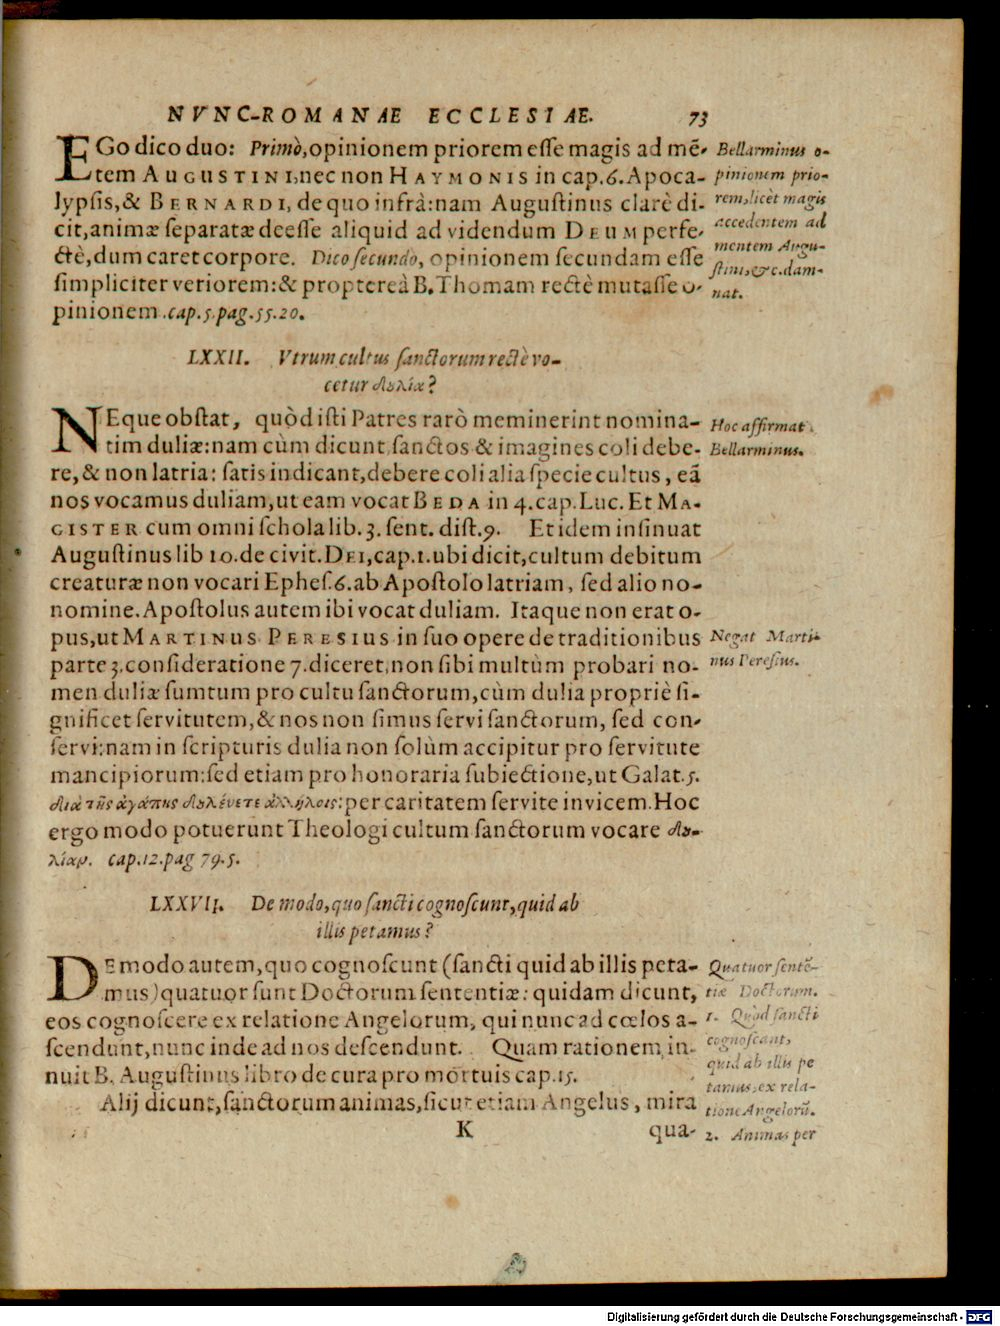 NVNC-ROMANAE ECCLESIAE. 73
EGo dico duo: Primò, opinionem priorem esse magis ad mē-
tem AUGUSTINI, nec non HAYMONIS in cap. 6. Apoca-
lypsis, & BERNARDI, de quo infrà: nam Augustinus clarè di-
cit, animæ separatæ deesse aliquid ad videndum DEUM perfe-
ctè, dum caret corpore. Dico secundo, opinionem secundam esse
simpliciter veriorem: & proptereà B. Thomam rectè mutasse o-
pinionem. cap. 5. pag. 55. 20.
Bellarminus o-
pinionem prio-
rem, licèt magis
accedentem ad
mentem Augu-
stini, &c. dam-
nat.
LXXII. Vtrum cultus sanctorum rectè vo-
cetur δουλία?
NEque obstat, quòd isti Patres rarò meminerint nomina-
tim duliæ: nam cùm dicunt sanctos & imagines coli debe-
re, & non latria: satis indicant, debere coli alia specie cultus, eā
nos vocamus duliam, ut eam vocat BEDA in 4. cap. Luc. Et MA-
GISTER cum omni schola lib. 3. sent. dist. 9. Et idem insinuat
Augustinus lib 10. de civit. DEI, cap. 1. ubi dicit, cultum debitum
creaturæ non vocari Ephes. 6. ab Apostolo latriam, sed alio no-
nomine. Apostolus autem ibi vocat duliam. Itaque non erat o-
pus, ut MARTINUS PERESIUS in suo opere de traditionibus
parte 3. consideratione 7. diceret, non sibi multùm probari no-
men duliæ sumtum pro cultu sanctorum, cùm dulia propriè si-
gnificet servitutem, & nos non simus servi sanctorum, sed con-
servi: nam in scripturis dulia non solùm accipitur pro servitute
mancipiorum: sed etiam pro honoraria subiectione, ut Galat. 5.
διὰ τῆς ἀγάπης δουλέυετε ἀλλήλοις: per caritatem servite invicem. Hoc
ergo modo potuerunt Theologi cultum sanctorum vocare δου-
λίαν. cap. 12. pag 79. 5.
Hoc affirmat
Bellarminus.
Negat Marti-
nus Peresius.
LXXVII. De modo, quo sancti cognoscunt, quid ab
illis petamus?
DE modo autem, quo cognoscunt (sancti quid ab illis peta-
mus) quatuor sunt Doctorum sententiæ: quidam dicunt,
eos cognoscere ex relatione Angelorum, qui nunc ad cœlos a-
scendunt, nunc inde ad nos descendunt. Quam rationem in-
nuit B. Augustinus libro de cura pro mortuis cap. 15.
Alij dicunt, sanctorum animas, sicut etiam Angelus, mira
Quatuor sentē-
tiæ Doctorum.
1. Quòd sancti
cognoscant,
quid ab illis pe
tamus, ex rela-
tione Angelorū.
2. Animas per
K qua-
Digitalisierung gefördert durch die Deutsche Forschungsgemeinschaft - DFG